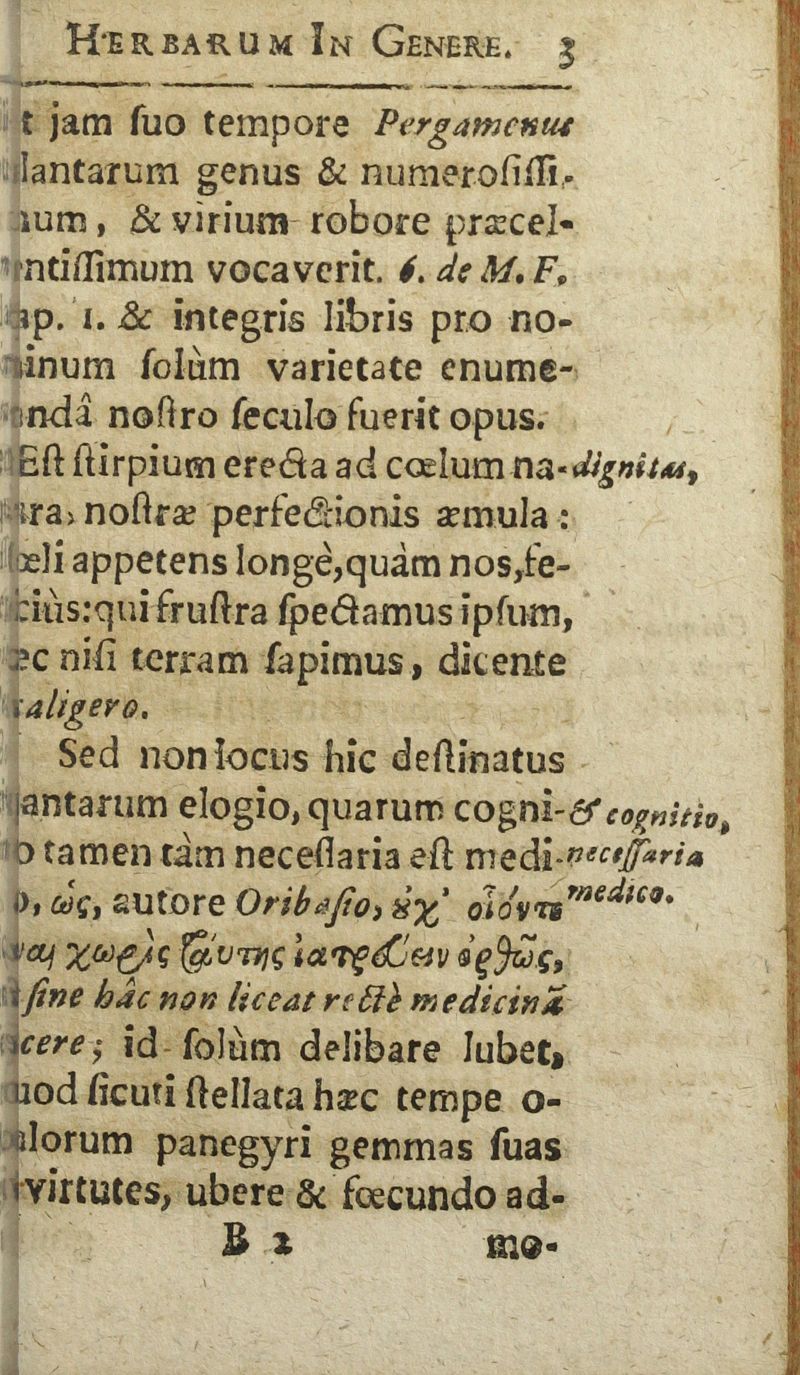 HERBARUM IN GENERE. 3
t jam ſuo tempore Pergamenus
lantarum genus & numeroſiſſi-
um, & virium robore præcel-
ntiſſimum vocaverit. 6. de M. F.
ap. 1. & integris libris pro no-
inum ſolùm varietate enume-
ndâ noſtro ſeculo fuerit opus.
Eſt ſtirpium erecta ad cœlum na- dignitas,
ura, noſtræ perfectionis æmula:
œli appetens longè, quàm nos, fe-
ciùs: qui fruſtra ſpectamus ipſum,
ec niſi terram ſapimus, dicente
caligero.
Sed non locus hic deſtinatus
lantarum elogio, quarum cogni- & cognitio,
o tamen tàm neceſſaria eſt medi- neceſſaria
o, ὡς, autore Oribaſio, ȣ̓χ' οἷόν τε medico.
ναι χωρὶς ταύτης ἰατρεύειν ὀρθῶς,
ſine hâc non liceat rectè medicinâ
cere; id ſolùm delibare lubet,
uod ſicuti ſtellata hæc tempe o-
lorum panegyri gemmas ſuas
virtutes, ubere & fœcundo ad-
B 2 mo-